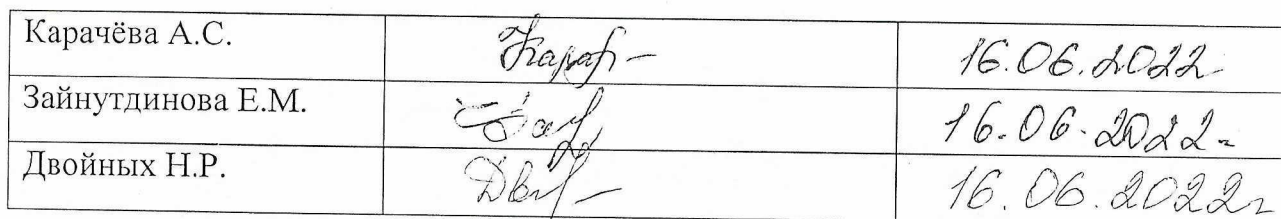 Карачёва А.С. 16.06.2022
Зайнутдинова Е.М. 16.06.2022
Двойных Н.Р. 16.06.2022г